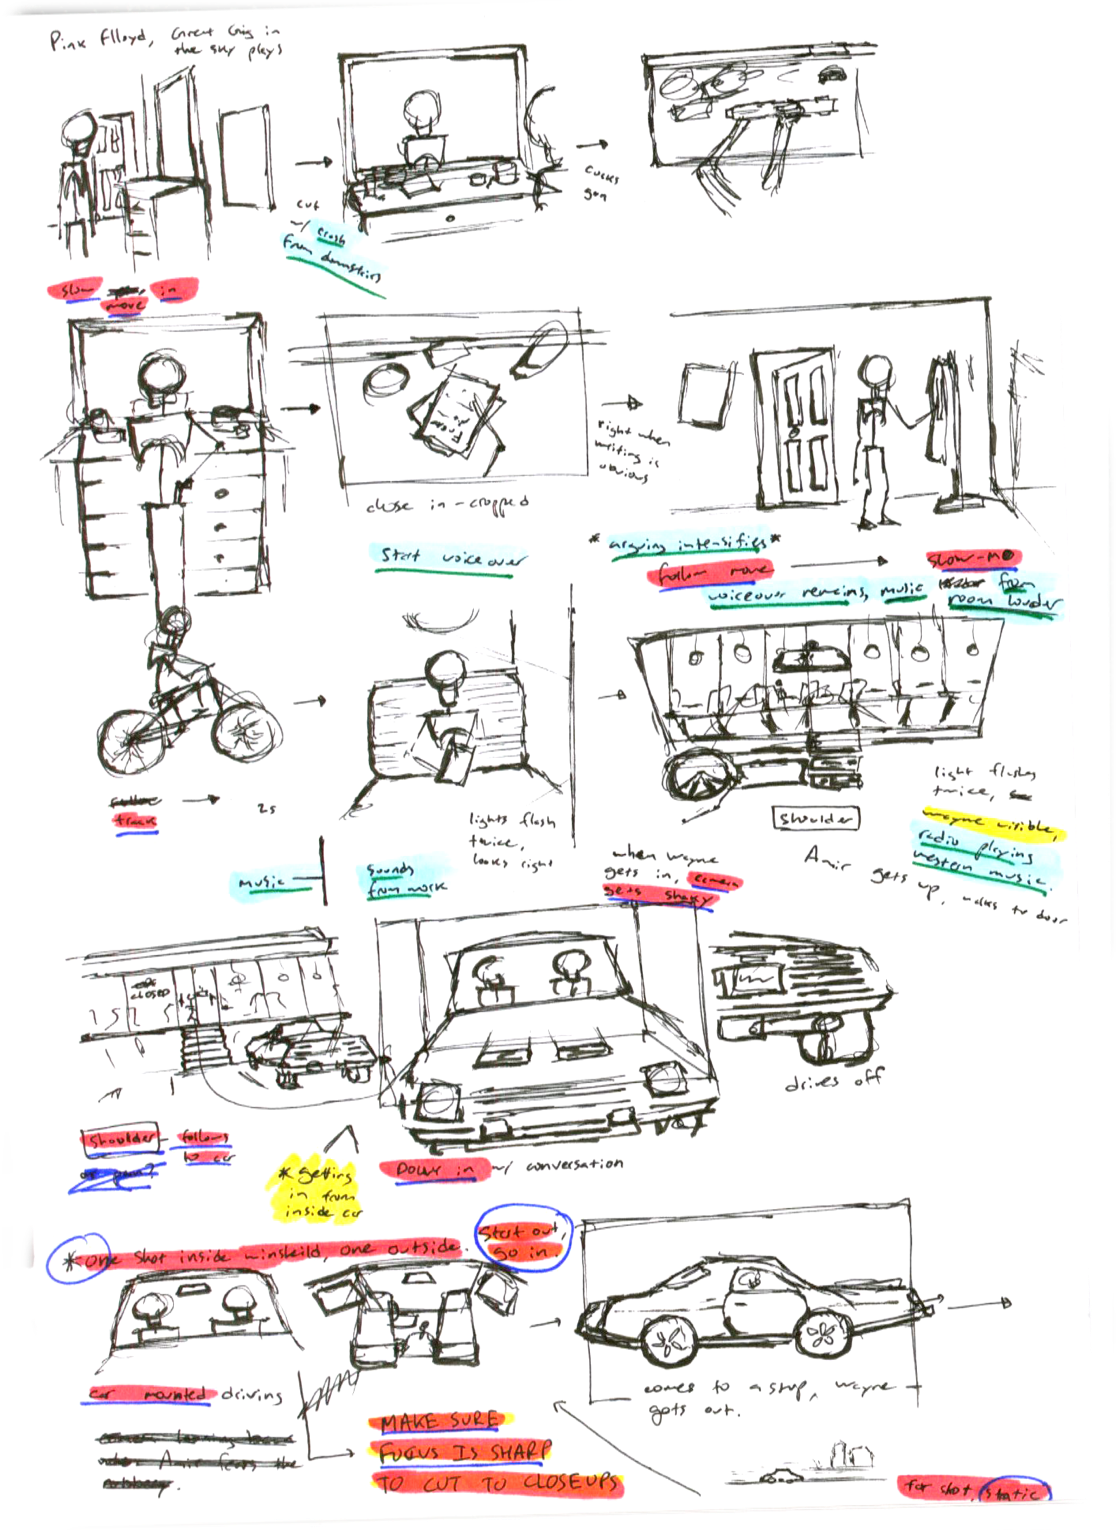 Pink Flloyd, Great Gig in
the sky plays
cut
w/ crash
from downstairs
cocks
gun
slow move in
close in - cropped
right when
writing is
obvious
Start voiceover
* arguing intensifies *
follow move
slow-mo
voiceover remains, music from
room louder
track
2s
lights flash
twice,
looks right
shoulder
light flashes
twice,
wayne visible,
radio playing
western music.
Amir gets up, walks to door
music
sounds
from work
when wayne
gets in, camera
gets shaky
CLOSED
drives off
shoulder - follows
to car
or pan?
* getting
in from
inside car
DOLLY in w/ conversation
* one shot inside winsheild, one outside.
Start out,
go in.
car mounted driving
comes to a stop, wayne
gets out.
MAKE SURE
FOCUS IS SHARP
TO CUT TO CLOSEUPS
for shot, static